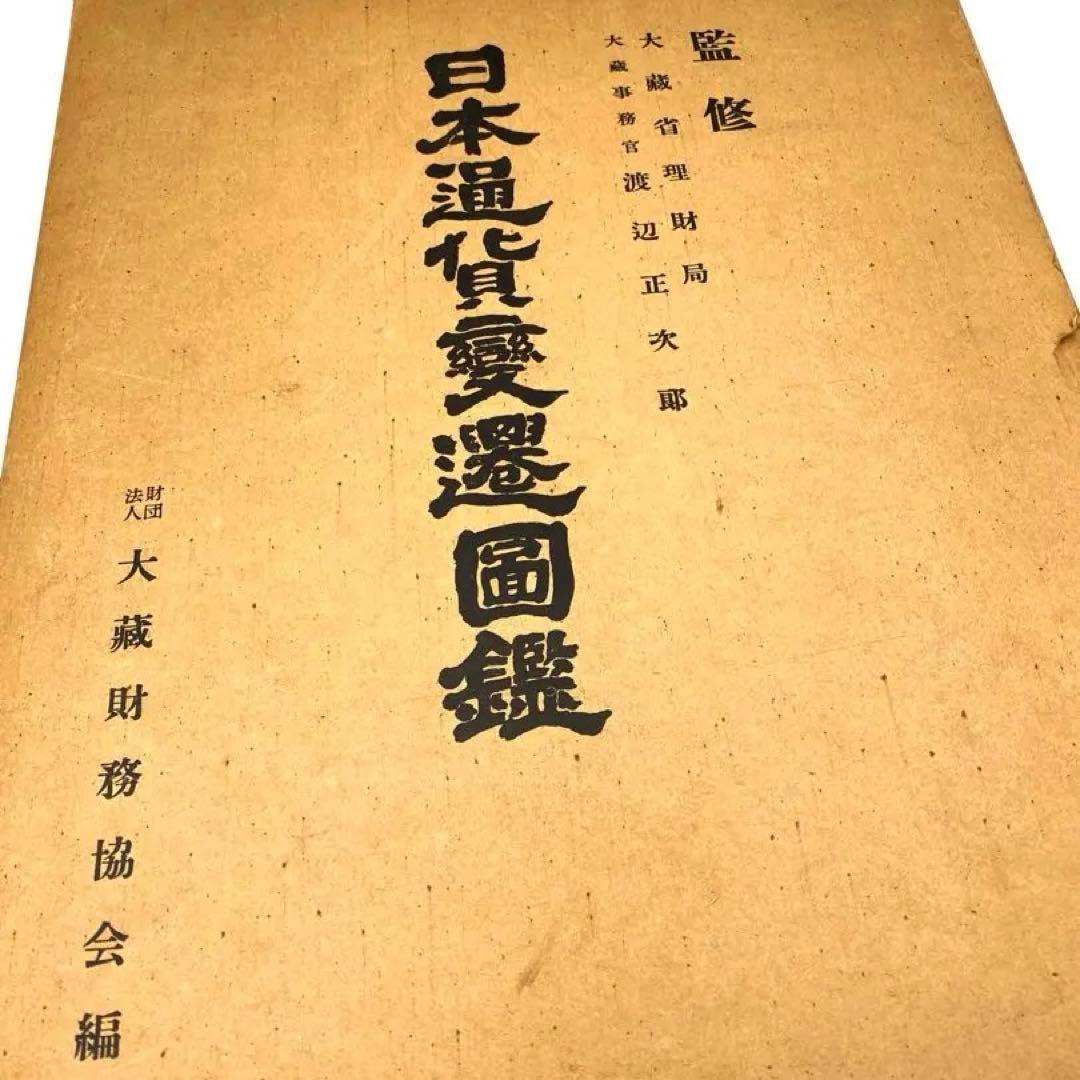 監修
大蔵省理財局
大蔵事務官 渡辺正次郎
日本通貨變遷圖鑑
財団法人 大蔵財務協会編